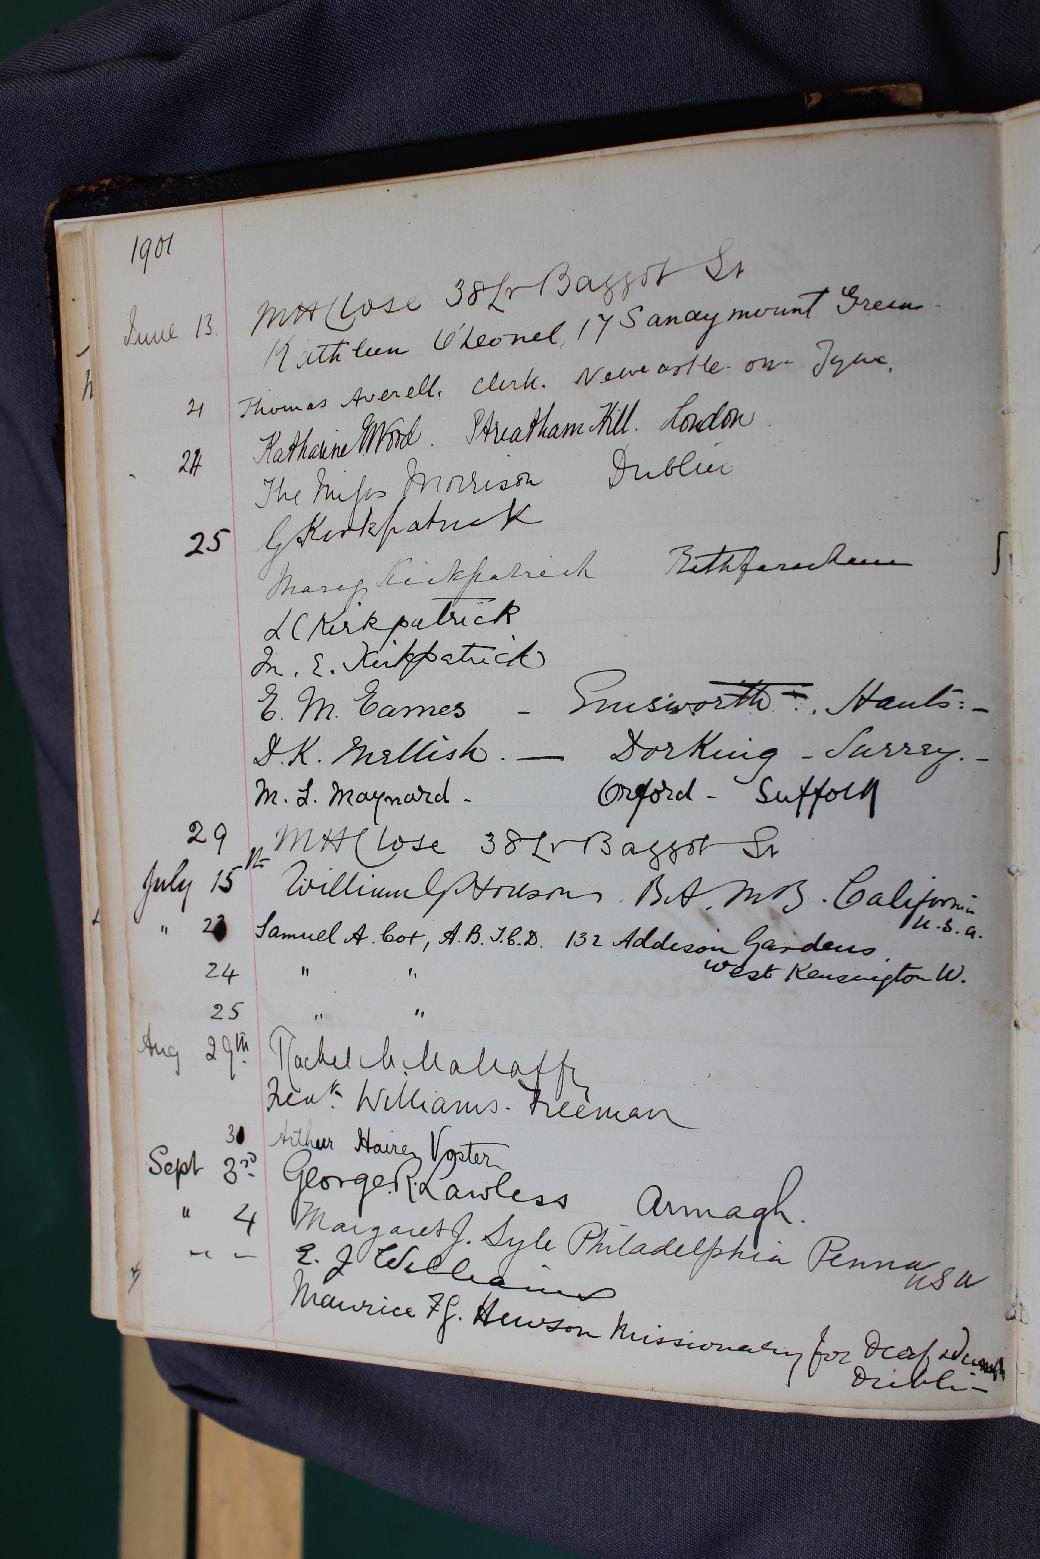 1901
June 13. MHClose 38 Lr Baggot St
Kathleen O'Leonel, 17 Sandymount Green
21 Thomas Averell. Clerk. Newcastle-on-Tyne.
24 Katharine E Wood. Streatham Hill. London
The Miss Morrison Dublin
25 G Kirkpatrick
Mary Kirkpatrick Rathfarnham
L C Kirkpatrick
M. E. Kirkpatrick
E. M. Eames - Emsworth -. Hants:-
D. K. Mellish. — Dorking - Surrey. -
M. L. Maynard - Orford - Suffolk
29 MHClose 38 Lr Baggot St
July 15th William G Houson. B.A. M B. California
U.S.a.
" 23 Samuel A. Cox, A.B.T.C.D. 132 Addison Gardens,
West Kensington W.
24 " "
25 " "
Aug 29th Rachel M. Mahaffy
Williams-Freeman
30 Arthur Foster
Sept 3rd George R. Lawless Armagh.
" 4 Margaret J. Syle Philadelphia Penna
USA
" " E. J Williams
Maurice F. G. Hewson Missionary for Deaf & Dumb
Dublin